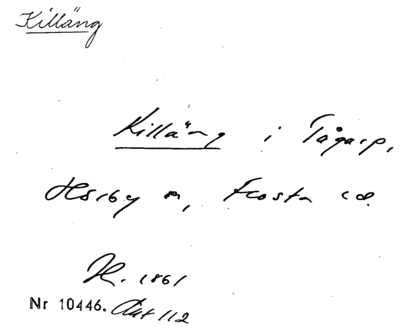 Killäng
Killäng i Tågarp,
Hörby sn, Frosta hd.
H. 1861
Nr 10446. Akt 112